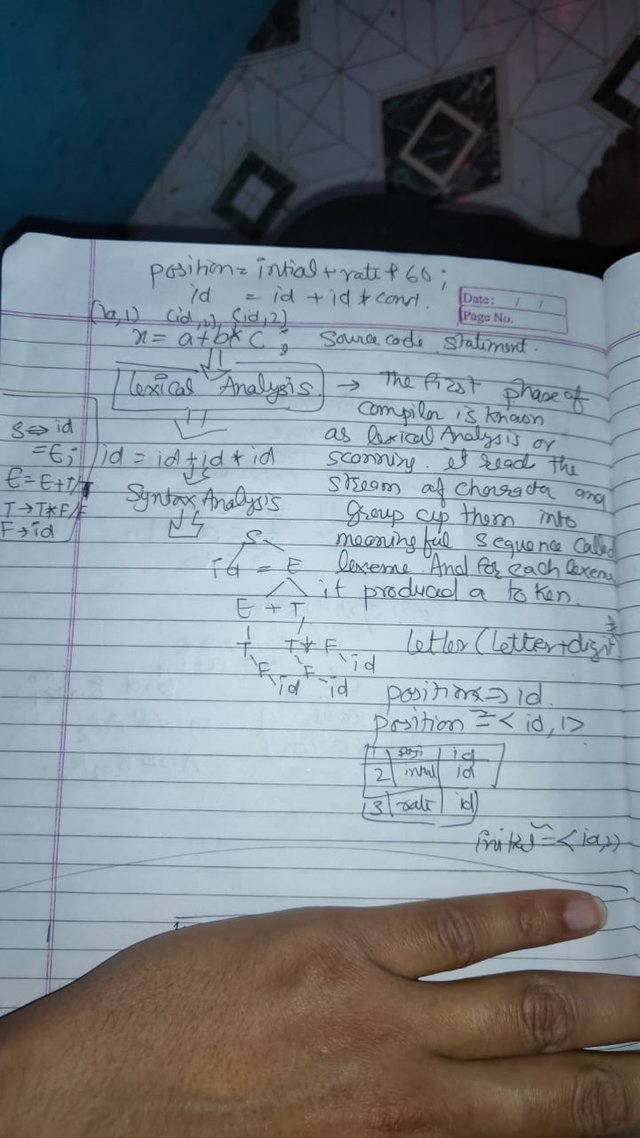 position = intial + rate * 60;
id = id + id * const.
Date: / /
Page No.
(id,1) (id,2)
x = a + b * c ; Source code statiment.
Lexical Analysis → The first phase of
compiler is known
as lexical Analysis or
scanning. it read the
stream of character and
group up them into
meaningful sequence called
lexeme. And for each lexeme
it produced a token.
S ⇒ id
= E;
E = E + T/T
T → T * F/F
F → id
id = id + id * id
Syntax Analysis
S
id = E
E + T
T T * F
F F id
id id
letter (letter + digit)*
position ⇒ id.
position ⇒ < id, 1>
1 posi id
2 initial id
3 rate id
initial ⇒ < id, 2>